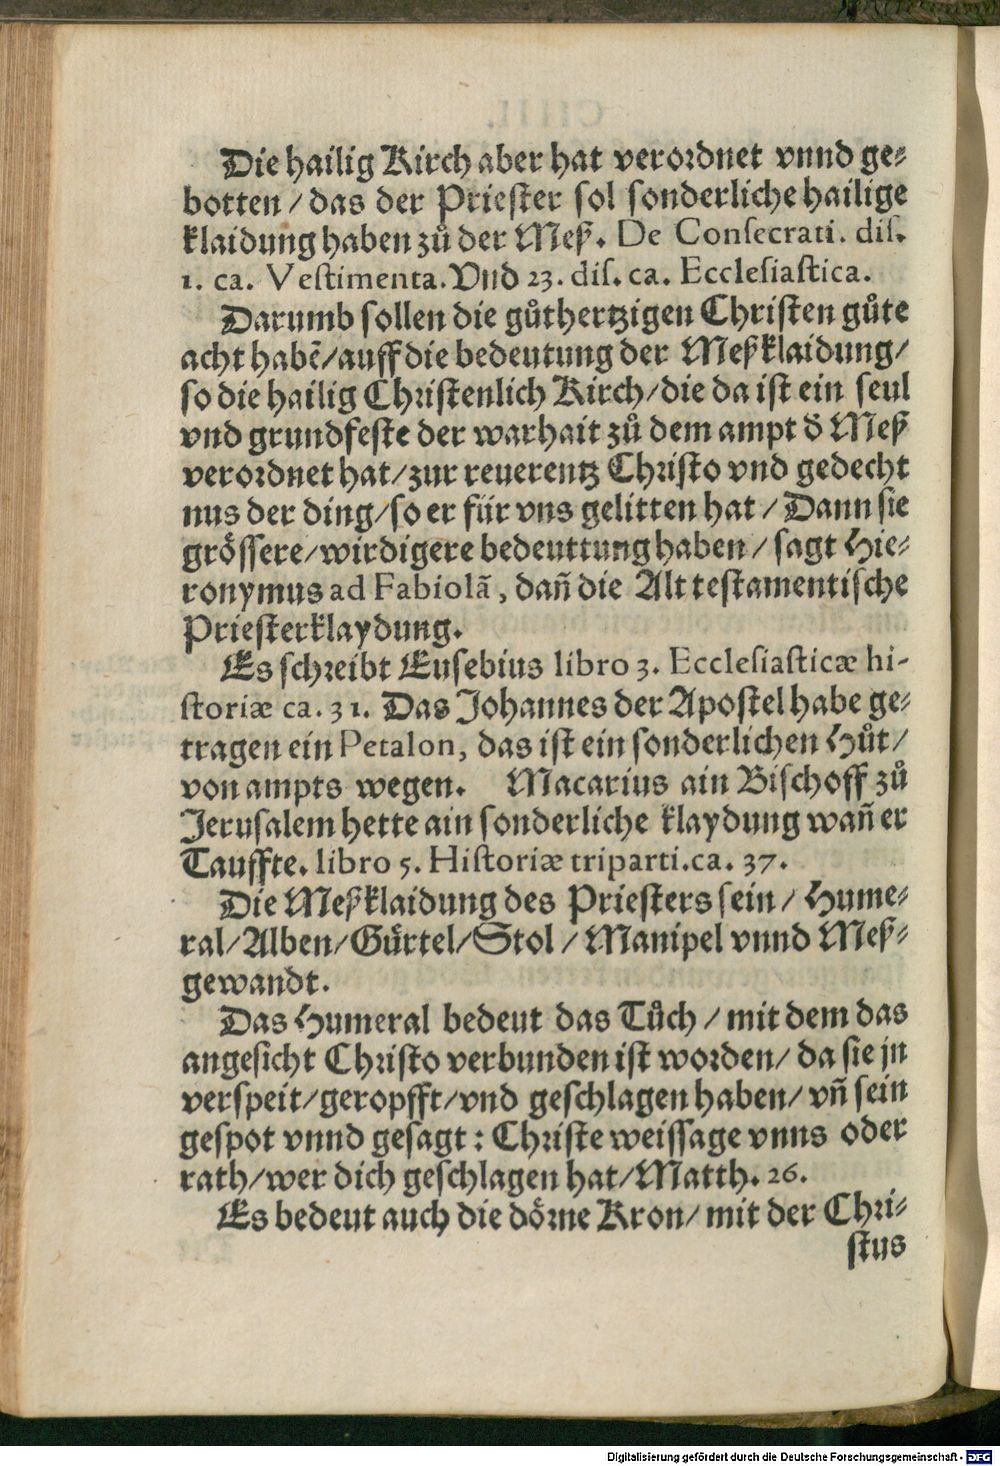 Die hailig Kirch aber hat verordnet vnnd ge-
botten / das der Priester sol sonderliche hailige
klaidung haben zů der Meß. De Consecrati. dis.
1. ca. Vestimenta. Vnd 23. dis. ca. Ecclesiastica.
Darumb sollen die gůthertzigen Christen gůte
acht habẽ/auff die bedeutung der Meßklaidung/
so die hailig Christenlich Kirch/die da ist ein seul
vnd grundfeste der warhait zů dem ampt d̓ Meß
verordnet hat/zur reuerentz Christo vnd gedecht
nus der ding/so er für vns gelitten hat / Dann sie
grössere/wirdigere bedeuttung haben / sagt Hie-
ronymus ad Fabiolã, dañ die Alt testamentische
Priesterklaydung.
Es schreibt Eusebius libro 3. Ecclesiasticæ hi-
storiæ ca. 31. Das Johannes der Apostel habe ge-
tragen ein Petalon, das ist ein sonderlichen Hůt/
von ampts wegen. Macarius ain Bischoff zů
Jerusalem hette ain sonderliche klaydung wañ er
Tauffte. libro 5. Historiæ triparti.ca. 37.
Die Meßklaidung des Priesters sein / Hume-
ral/Alben/Gürtel/Stol / Manipel vnnd Meß-
gewandt.
Das Humeral bedeut das Tůch / mit dem das
angesicht Christo verbunden ist worden/ da sie jn
verspeit/geropfft/vnd geschlagen haben/ vñ sein
gespot vnnd gesagt: Christe weissage vnns oder
rath/wer dich geschlagen hat/Matth. 26.
Es bedeut auch die dörne Kron/ mit der Chri-
stus
Digitalisierung gefördert durch die Deutsche Forschungsgemeinschaft - DFG